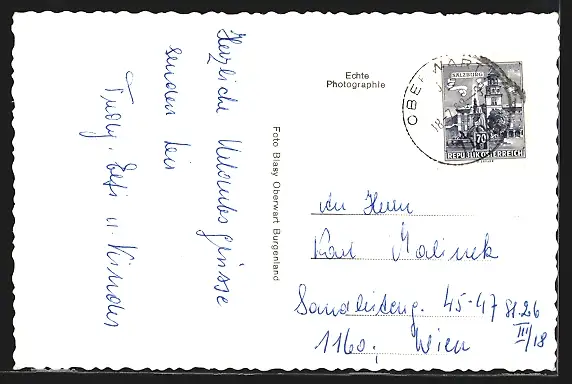 Herzliche Urlaubs Grüsse
senden dir
Trudy, Edi u. Kinder
Foto Blasy Oberwart Burgenland
Echte
Photographie
OBERWART
18.7.
SALZBURG
70
REPUBLIK ÖSTERREICH
An Herrn
Karl Malinek
Sandleiteng. 45-47 St. 26
III/18
1160, Wien